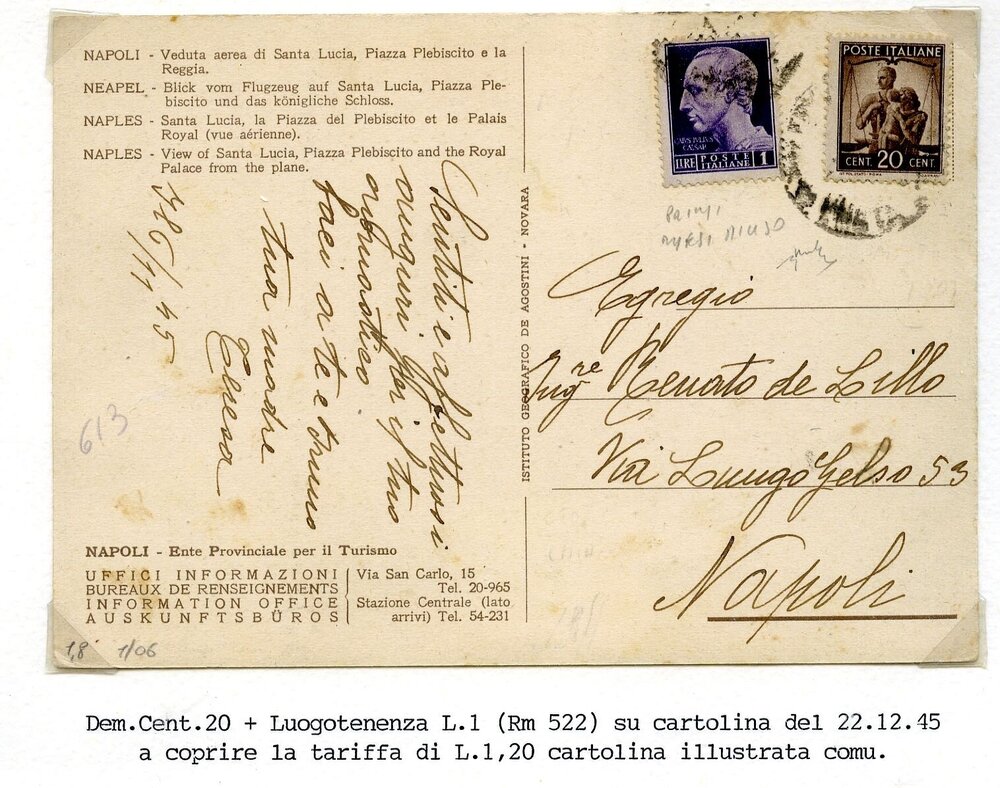 NAPOLI - Veduta aerea di Santa Lucia, Piazza Plebiscito e la
Reggia.
NEAPEL - Blick vom Flugzeug auf Santa Lucia, Piazza Ple-
biscito und das königliche Schloss.
NAPLES - Santa Lucia, la Piazza del Plebiscito et le Palais
Royal (vue aérienne).
NAPLES - View of Santa Lucia, Piazza Plebiscito and the Royal
Palace from the plane.
Sentiti e affettuosi
auguri per il tuo
onomastico
baci a te e
tua madre
Teresa
45
613
NAPOLI - Ente Provinciale per il Turismo
UFFICI INFORMAZIONI
BUREAUX DE RENSEIGNEMENTS
INFORMATION OFFICE
AUSKUNFTSBÜROS
Via San Carlo, 15
Tel. 20-965
Stazione Centrale (lato
arrivi) Tel. 54-231
1,8 1/06
ISTITUTO GEOGRAFICO DE AGOSTINI - NOVARA
CAIVS IVLIVS
CAESAR
LIRE POSTE ITALIANE 1
POSTE ITALIANE
CENT. 20 CENT.
Egregio
Ingre Renato de Lillo
Via Lungo Gelso 53
Napoli
Dem.Cent.20 + Luogotenenza L.1 (Rm 522) su cartolina del 22.12.45
a coprire la tariffa di L.1,20 cartolina illustrata comu.